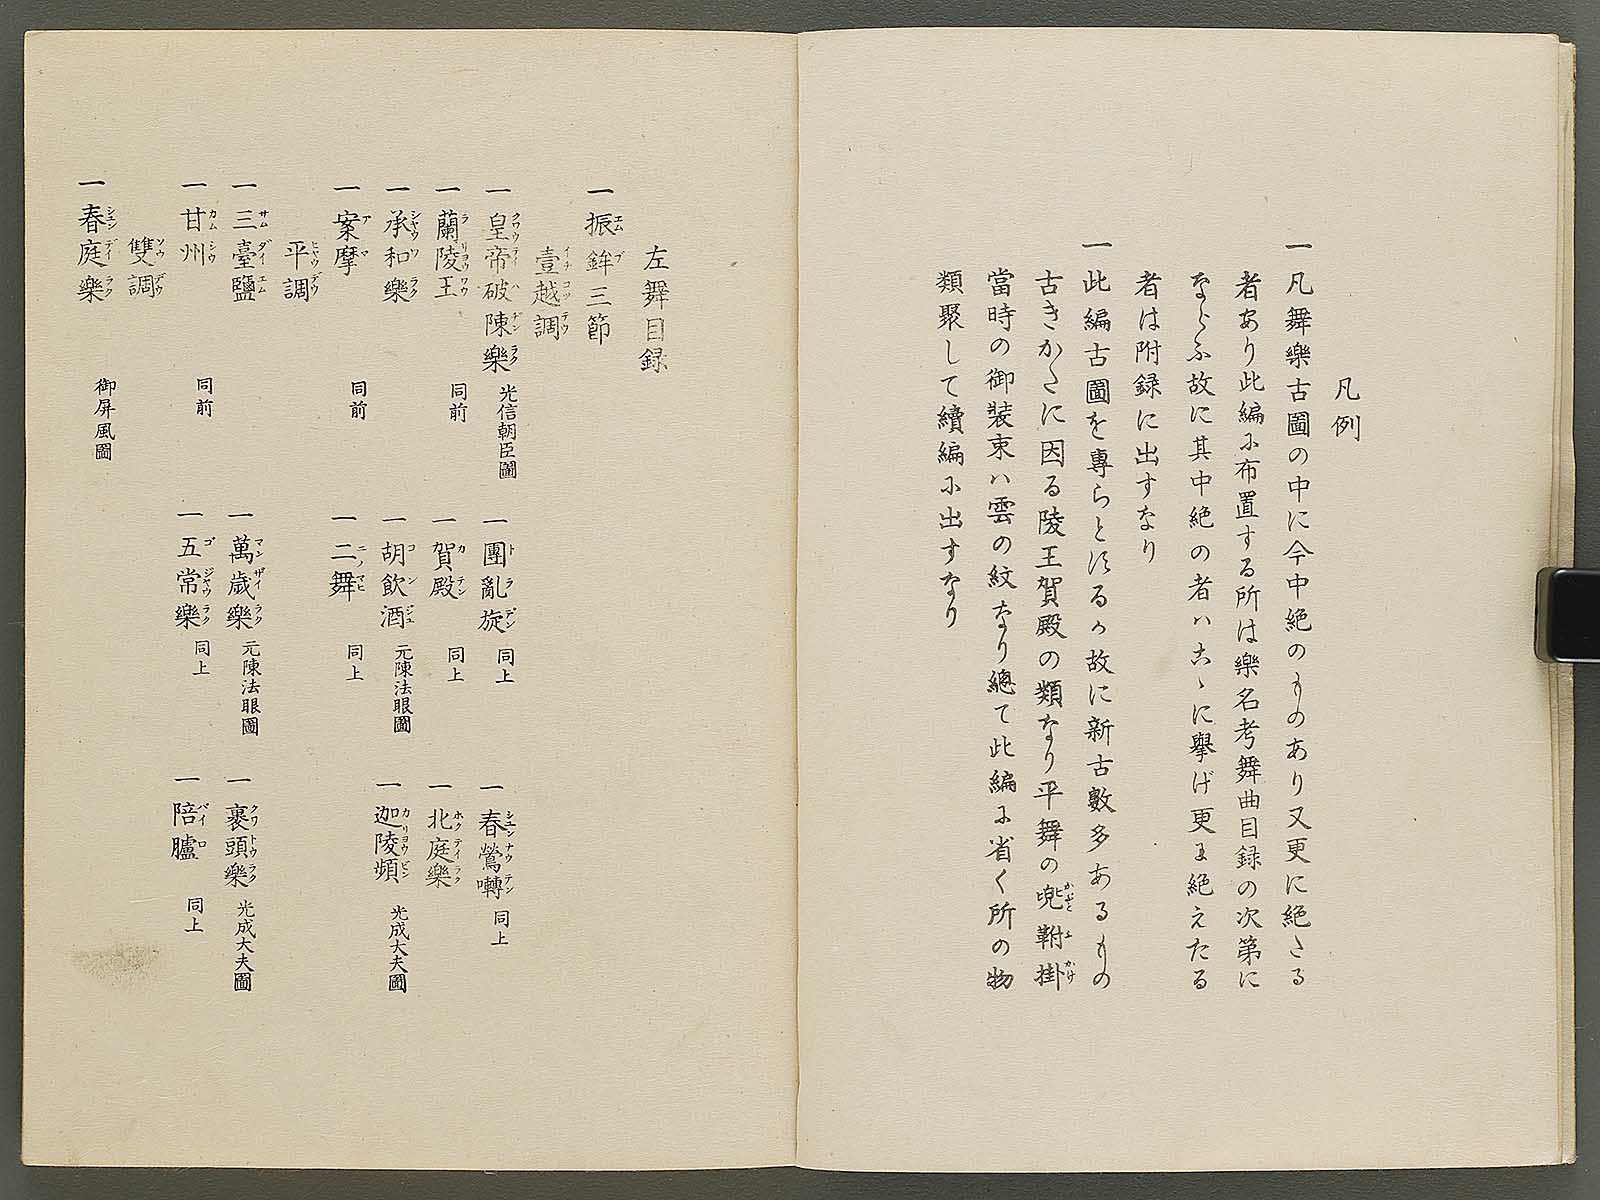 凡例
一凡舞樂古圖の中に今中絶のものあり又更に絶さる
者あり此編に布置する所は樂名考舞曲目録の次第に
ならふ故に其中絶の者ハこゝに擧げ更に絶えたる
者は附録に出すなり
一此編古圖を專らとするか故に新古數多あるもの
古きかたに因る陵王賀殿の類なり平舞の兜掛
當時の御裝束ハ雲の紋なり總て此編に省く所の物
類聚して續編に出すなり
左舞目録
一振鉾三節
壹越調
一皇帝破陳樂 光信朝臣圖 一團亂旋 同上 一春鶯囀 同上
一蘭陵王 同前 一賀殿 同上 一北庭樂
一承和樂 一胡飲酒 元陳法眼圖 一迦陵頻 光成大夫圖
一案摩 同前 一二舞 同上
平調
一三臺鹽 一萬歳樂 元陳法眼圖 一裹頭樂 光成大夫圖
一甘州 同前 一五常樂 同上 一陪臚 同上
雙調
一春庭樂 御屏風圖